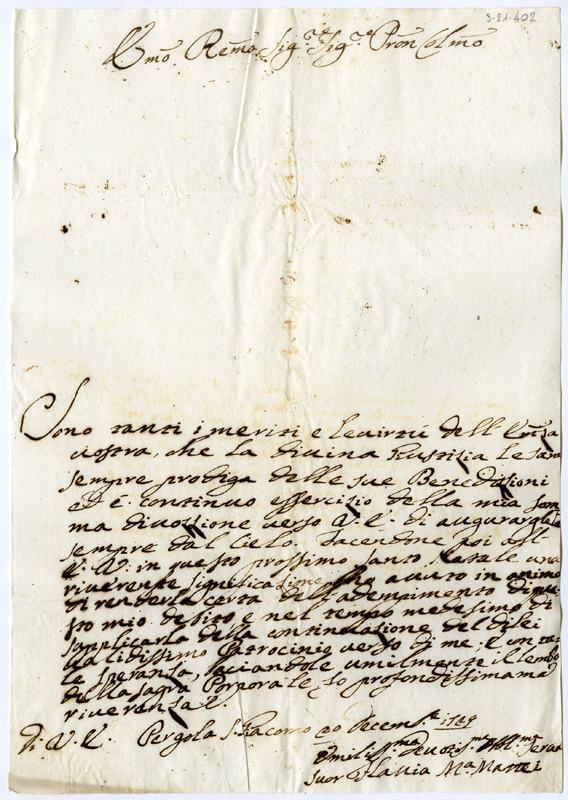 3-21-402
Emo Remo Sigre Sigre Pron Colmo
Sono tanti i meriti e le virtù dell Emza
vostra, che la divina Giustisia le sarà
sempre prodiga delle sue Benedisioni
ed è continuo essercisio della mia som
ma divosione verso V. E. di augurargliele
sempre dal Cielo. Facendone poi all
E. V. in questo prossimo santo Natale una
riverente significasione, ho avuto in animo
di renderla certa dell adempimento di que
sto mio debito e nel tempo medesimo di
supplicarla della continuasione del di lei
validissimo Patrocinio verso di me; E con ta
le speransa, baciandole umilmente il lembo
della sagra Porpora le fo profondissima
riverensa.
di V. E. Pergola S. Giacomo 20 Decemb. 1729
Umiliss.ma Devotis.ma Obb.ma Serva
Suor Flavia Ma Mattei